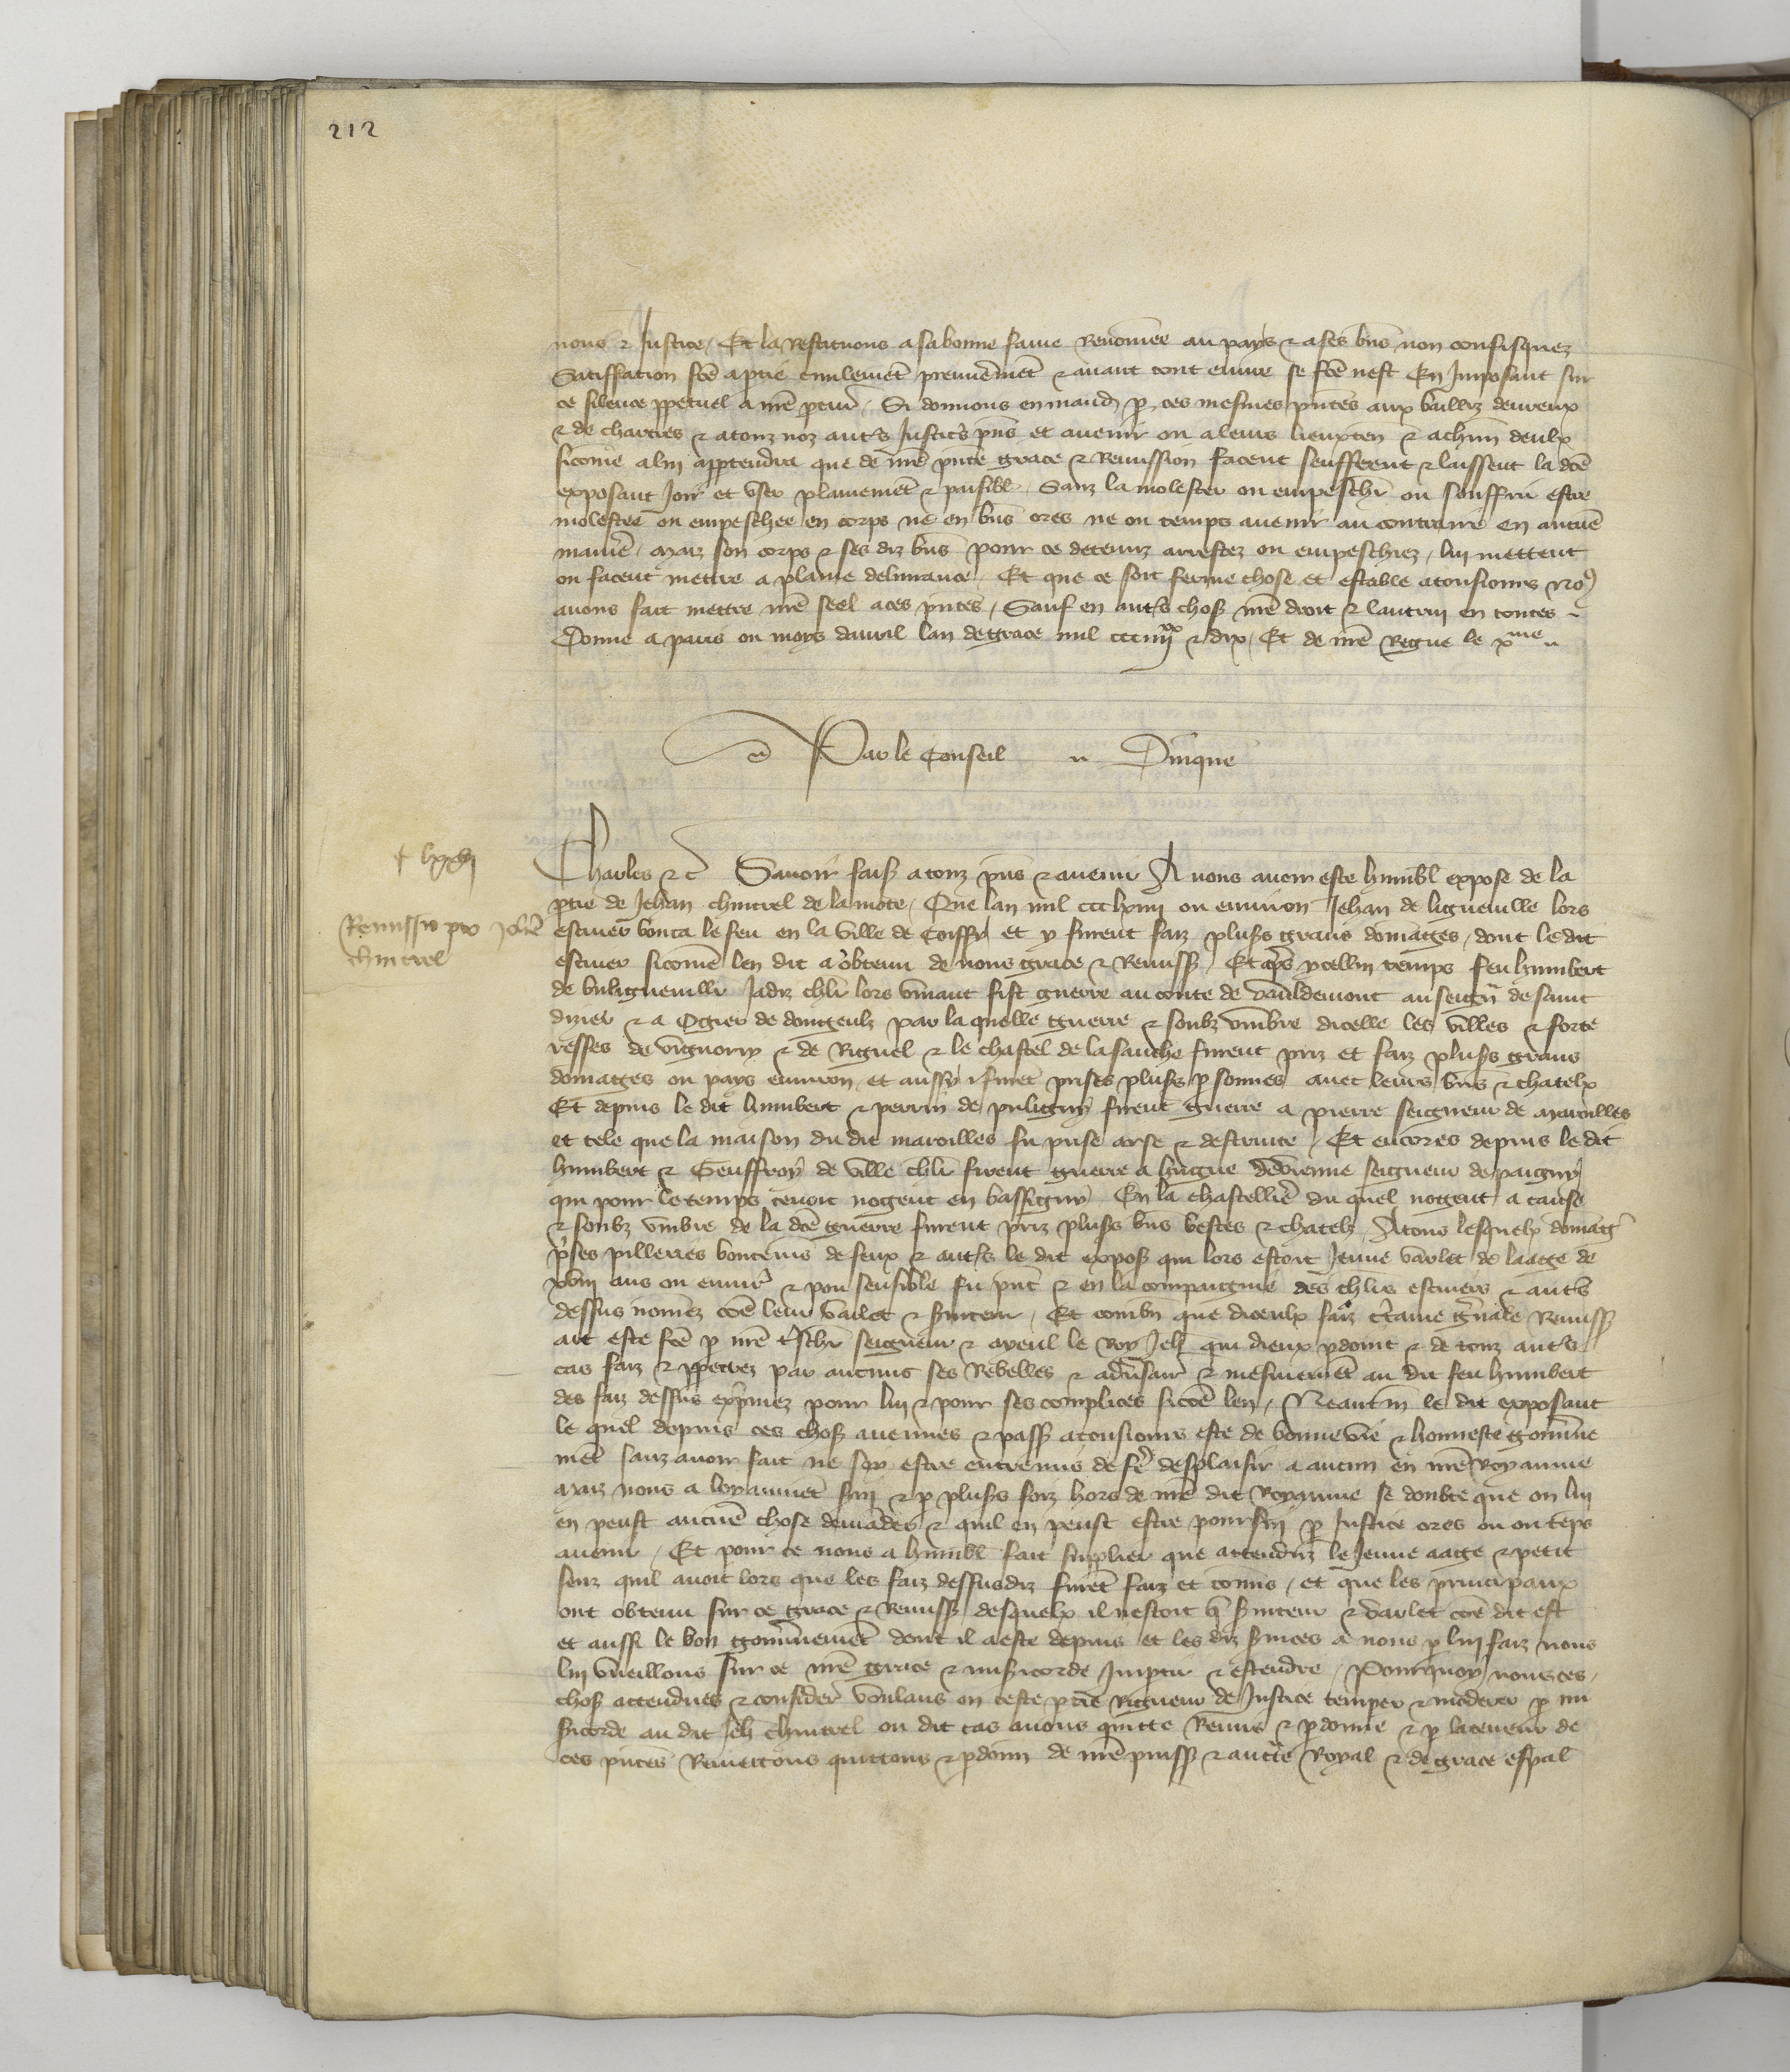 212
nous & Justice / Et la restituons a sa bonne fame Renomee au pays & a ses biens non confisquez
Satiffation fcẽ a ptie ciuilemẽt premieremẽt & auant tout euure se fcẽ nest En Imposant sur
ce silence ppetuel a nrẽ pcur̃ . Si donnons en mand p ces mesmes pntes aux bailliz deureux
& de chartres & a touz noz autˢ Justicˢ pñs et auenir ou a leurs lieuxten̄ & a chm̃ deulx
sicome a lui apptendra que de nrẽ pñte grace & Remission facent seuffrent & laissent la dcẽ
exposant Joir et vser plainemẽt & paisibl̃ Sanz la molester ou empeschr̃ ou souffrir estre
molestee ou empeschee en corps ne en bñs ores ne ou temps auenir au contraire en aucunẽ
manier̃e / Maiz son corps & ses diz bñs pour ce detenuz arrestez ou empeschiez / lui mettent
ou facent mettre a plaine deliurance Et que ce soit ferme chose et estable a tousiours no⁹
auons fait mettre nrẽ seel a ces pñtes / Sauf en autˢ choß nrẽ droit & lautrui en toutes
Donne a paris ou moys dauril lan de grace mil ccc iiijˣˣ & dix / Et de nrẽ Regne le xᵐᵉ
Par le Conseil
Charles &c Sauoir faiß a touz pñs & auenir A nous auoir este humbl̃ expose de la
Remissio pro Johẽ
ptie de Jehan chintrel de la mote / Que lan mil ccc lxiiij ou enuiron Jehan de ligneuille lors
chintrel
escuier bouta le feu en la ville de Coiffy et y furent faiz plußˢ grans domages / dont le dit
escuier sicomẽ len dit a obtenu de nous grace & Remiß Et apˢ ycellui temps feu humbert
de bulligneuille Jadiz chlr̃ lors viuant fist guerre au conte de vauldemont au seign̄r de saint
dizier & a Ogier de dongeulz par la quelle guerre & soubz vmbre dicelle les villes & forte
resses de vignory & de Riguel & le chastel de lafauche furent priz et faiz plußˢ grans
domages ou pays enuiron et aussy furẽt prises plußˢ psonnes auec leurs bñs & chatelx
Et depuis le dit humbert & perrin de puligny firent guerre a pierre seigneur de Maroilles
et tele que la maison du dit maroilles fu prise arse & destruite / Et encores depuis le dit
humbert & Geuffroy de ville chlr̃ firent guerre a hugue de vienne seigneur de paigny
qui pour le temps tenoit nogent en bassigny En la chastellerie du quel nogent a cause
& soubz vmbre de la dcẽ guerre furent priz plußˢ bñs bestes & chatelz A touz lesquelx domag̃
prises pilleries boutemẽs de feux & autˢ le dit expoß qui lors estoit Jeune varlet de laage de
xviij ans ou enuir̃ & pou sensible fu pnt̃ & en la compaignie des chlrs escuiers & autˢ
dessus nomez cõe leur varlet & seruiteur / Et combñ que diceulx faiz ctaine gñale Remiß
ait este fcẽ p nrẽ tresch̃r seigneur & ayeul le Roy Jeh̃ qui dieux pdoint & de touz autˢ
cas faiz & ppetrez par aucuns ses Rebelles & adusair̃ & mesmemẽt au dit feu humbert
des faiz dessus exprimez pour lui & pour ses complices sicõe len / Neantm̄ le dit exposant
le quel depuis ces choß auenues & paß a tousiours este de bonne vie & honneste gouuerne
mẽt sanz auoir fait ne soy estre entremis de fẽ desplaisir a aucun en nrẽ Royaume
Maiz nous a loyaumẽt sui & p plußˢ foiz hors de nrẽ dit Royaume se doubte que on lui
en peust aucunẽ chose demãder & quil en peust estre poursui p Justice ores ou ou teps
auenir / Et pour ce nous a humbl̃ fait suplier que attenduz le Jeune aage & petit
senz quil auoit lors que les faiz dessusdiz furẽt faiz et comis / et que les principaux
ont obtenu sur ce grace & Remiß desquelx il nestoit q̃ seruiteur & varlet cõe dit est
et aussi le bon gouuernemẽt dont il a este depuis et les diz seruices a nous p lui faiz nous
lui vueillons sur ce nrẽ grace & misicorde Impartir & estendre / Pourquoy nous ces
choß attendues & considerˢ voulans en ceste ptie Rigueur de Justice temper & moderer p mi
sicorde au dit Jeh̃ chintrel ou dit cas auons quitte Remis & pdonne & p la teneur de
ces pntes Remettons quittons & pdonn̄ de nrẽ puiß & auctte Royal & de grace espal̃